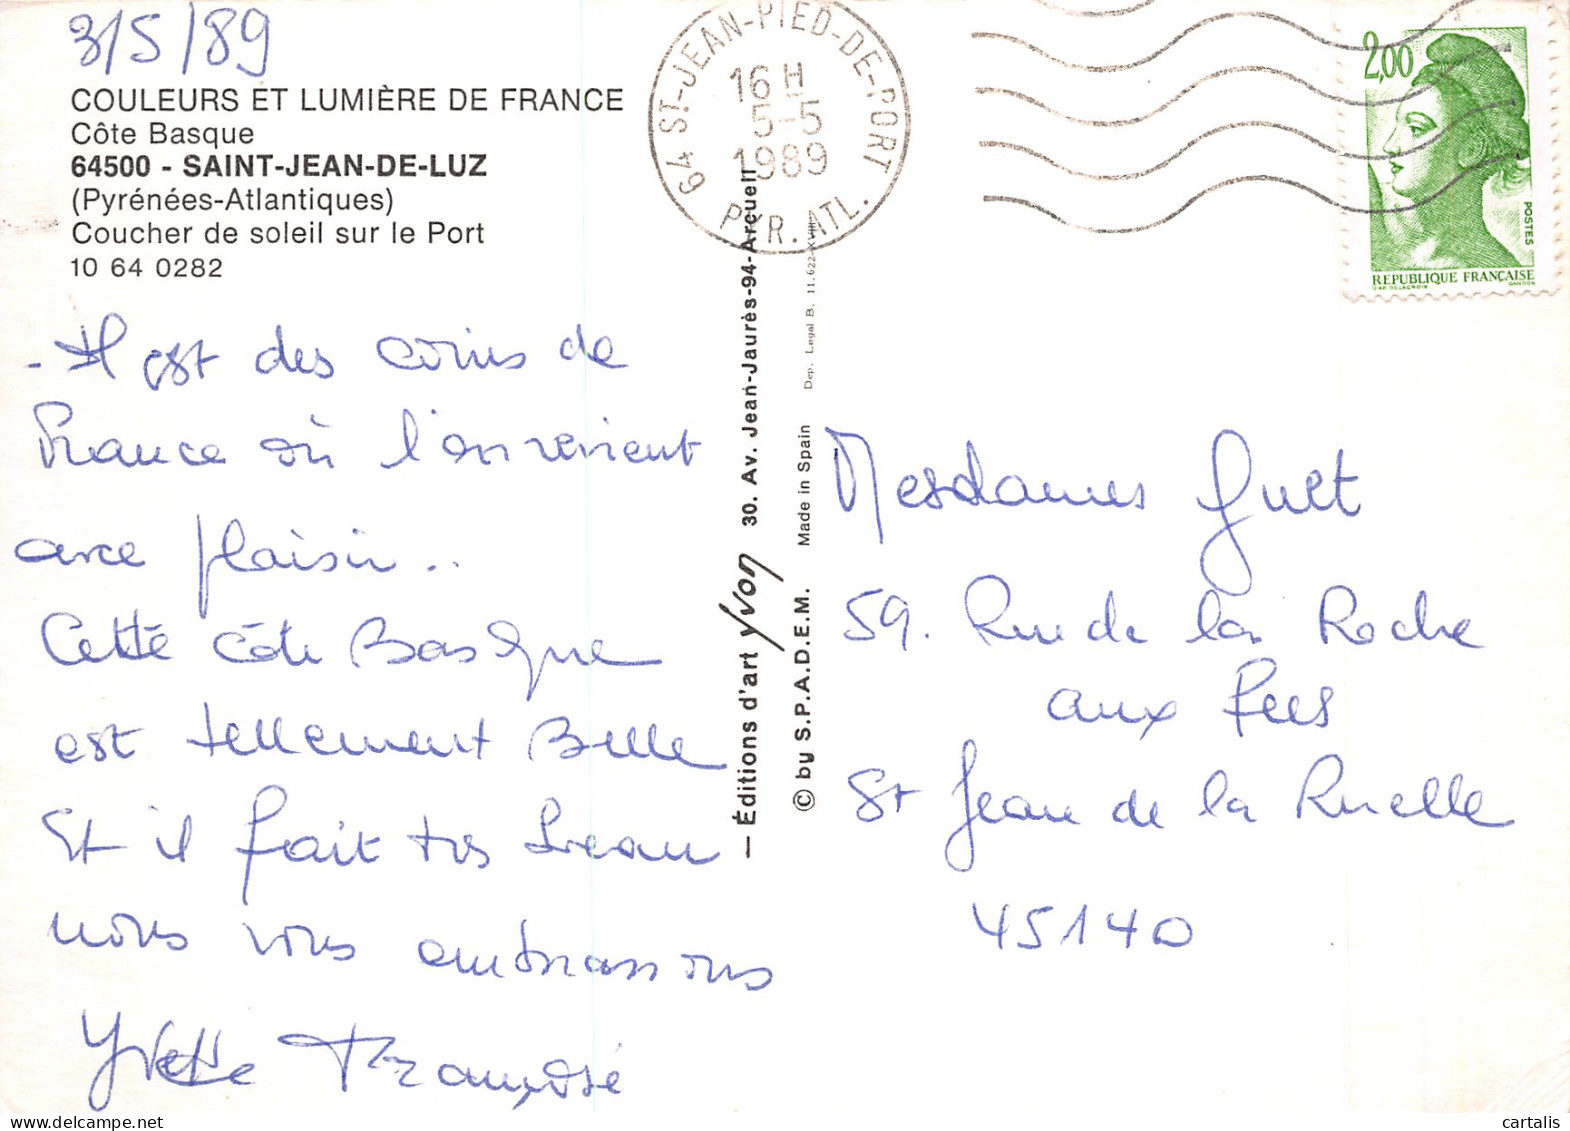 3/5/89
COULEURS ET LUMIÈRE DE FRANCE
Côte Basque
64500 - SAINT-JEAN-DE-LUZ
(Pyrénées-Atlantiques)
Coucher de soleil sur le Port
10 64 0282
- Il est des coins de
France où l'on revient
avec plaisir..
Cette côte Basque
est tellement Belle
Et il fait très beau
nous vous embrassons
Yvette Françoise
64 ST-JEAN-PIED-DE-PORT
16 H
5-5
1989
PYR. ATL.
— Éditions d'art Yvon 30. Av. Jean-Jaurès-94-Arcueil
© by S.P.A.D.E.M. Made in Spain Dep. Legal B. 11.622-XVIII
2,00
POSTES
REPUBLIQUE FRANÇAISE
D'AP. DELACROIX GANDON
Mesdames Guet
59. Rue de la Roche
aux Fées
St Jean de la Ruelle
45140
www.delcampe.net
cartalis